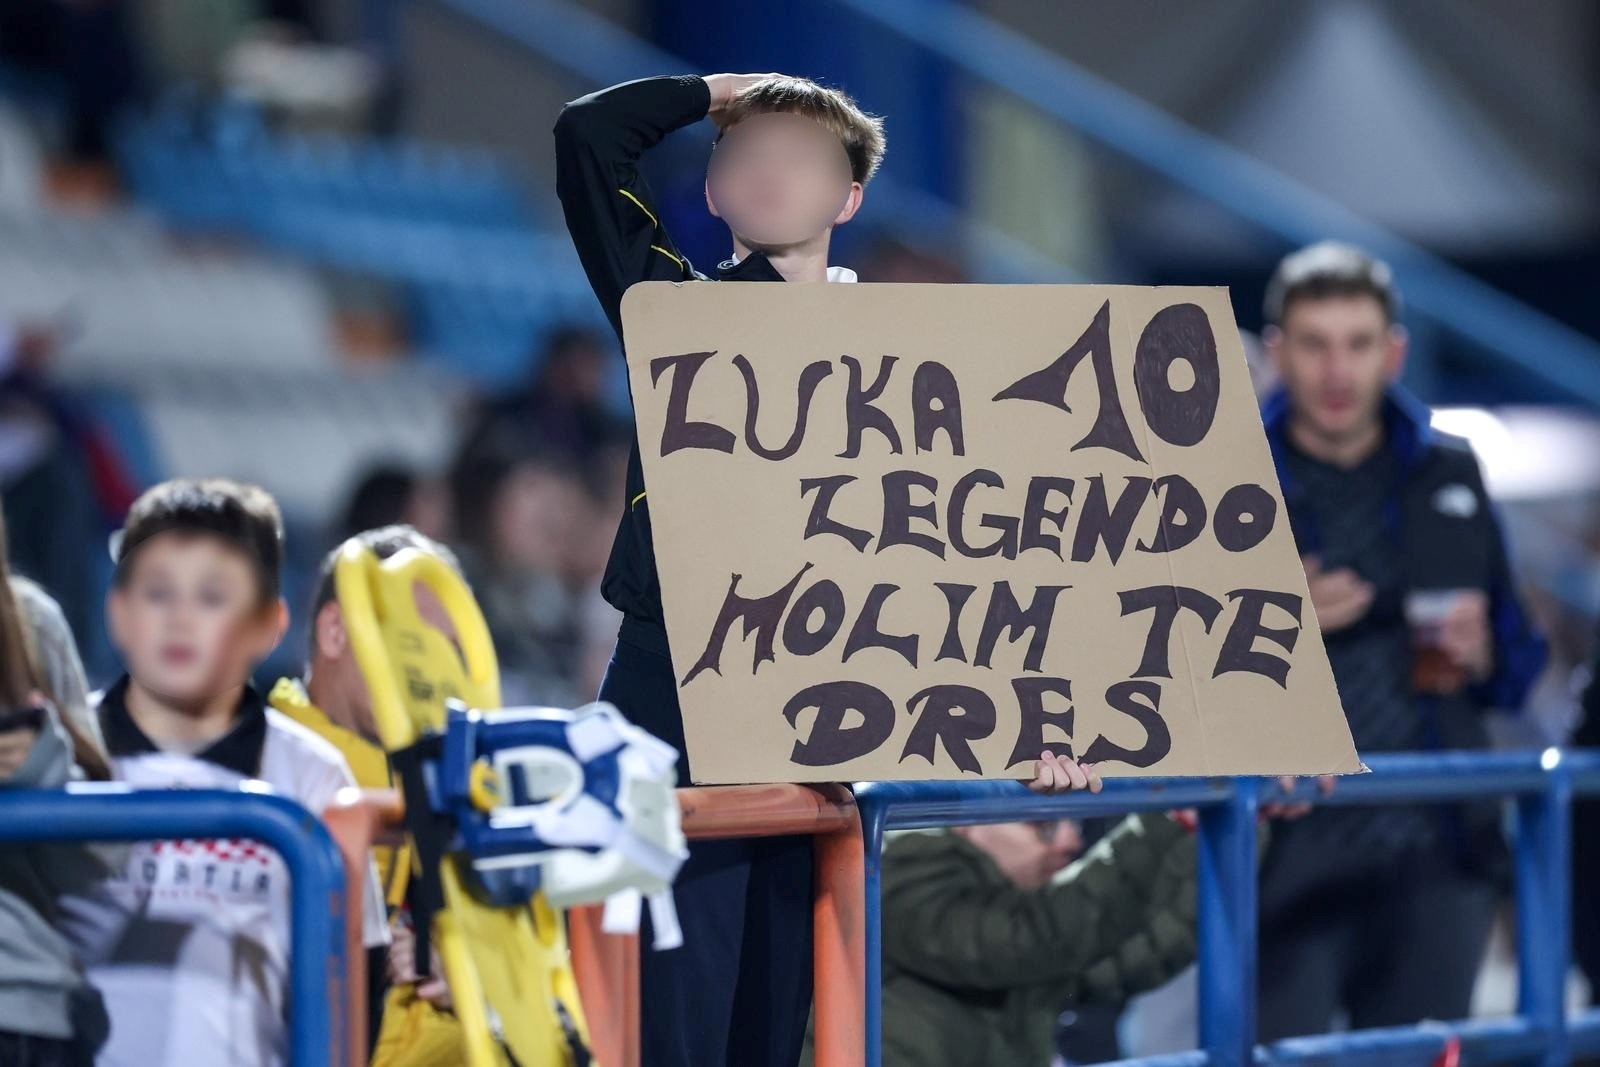 LUKA 10
LEGENDO
MOLIM TE
DRES